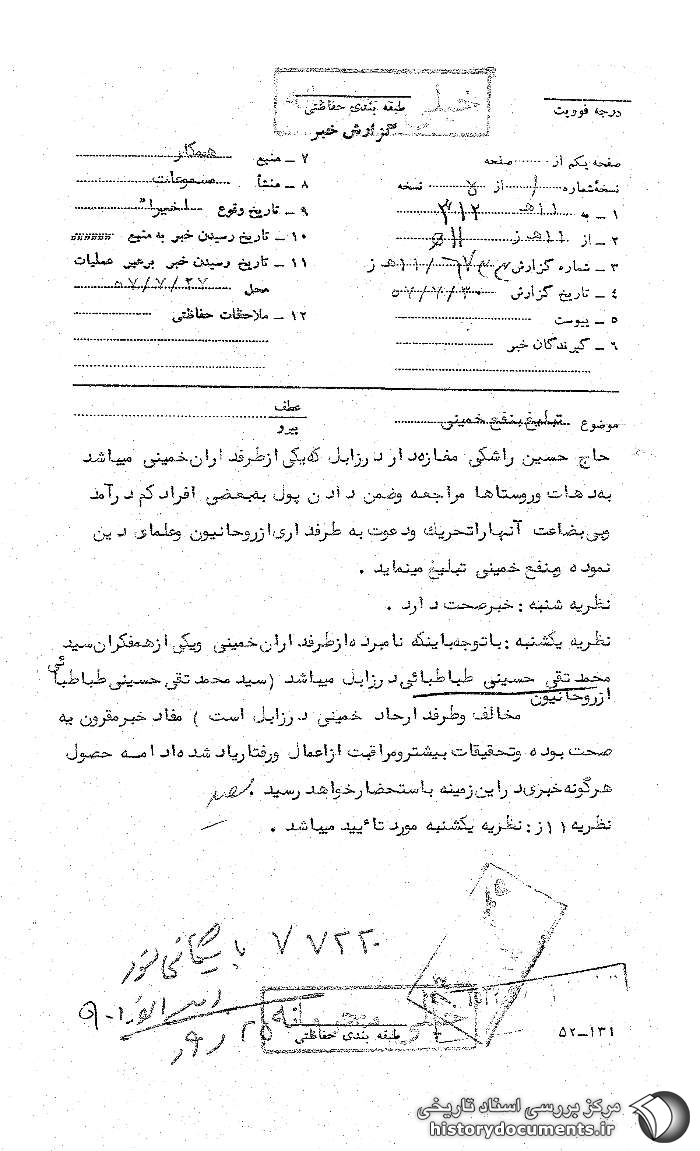 خیلی محرمانه
درجه فوریت
طبقه بندی حفاظتی
گزارش خبر
صفحه یکم از صفحه
نسخهٔ شماره ۱ از نسخه
۱ – به ۱۱هـ ۳۱۲
۲ – از ۱۱هـ ز
۳ – شماره گزارش ۱۱هـ ز
۴ – تاریخ گزارش ۵۷/۷/۳۰
۵ – پیوست
۶ – گیرندگان خبر
۷ – منبع همکار
۸ – منشأ مسموعات
۹ – تاریخ وقوع اخیرا"
۱۰ – تاریخ رسیدن خبر به منبع
۱۱ – تاریخ رسیدن خبر برهبر عملیات
محل ۵۷/۷/۲۷
۱۲ – ملاحظات حفاظتی
موضوع تبلیغ بنفع خمینی
عطف
پیرو
حاج حسین راشکی مغازه دار در زابل که یکی از طرفداران خمینی میباشد
به دهات و روستاها مراجعه وضمن دادن پول به بعضی افراد کم درآمد
وبی بضاعت آنهارا تحریك ودعوت به طرفداری از روحانیون وعلمای دین
نموده وبنفع خمینی تبلیغ مینماید .
نظریه شنبه : خبر صحت دارد .
نظریه یکشنبه : باتوجه باینکه نامبرده از طرفداران خمینی ویکی از همفکران سید
محمد تقی حسینی طباطبائی در زابل میباشد (سید محمد تقی حسینی طباطبائی
از روحانیون
مخالف وطرفدار حاد خمینی در زابل است ) مفاد خبر مقرون به
صحت بوده وتحقیقات بیشتر ومراقبت از اعمال ورفتار یاد شده ادامه حصول
هرگونه خبری در این زمینه باستحضار خواهد رسید .
نظریه ۱۱ز : نظریه یکشنبه مورد تائید میباشد .
۷۷۲۲۰
خیلی محرمانه
طبقه بندی حفاظتی
۵۲–۱۳۱
مرکز بررسی اسناد تاریخی
historydocuments.ir